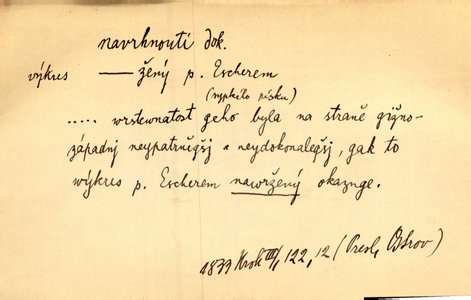 navrhnouti dok.
výkres —— žený p. Escherem
(nypkilo písku)
..... wrstewnatost geho byla na straně gižno-
západnj neypatrněgšj a neydokonalegšj, gak to
wýkres p. Escherem nawržený okazuge.
1833 Krok III/1, 122, 12 (Presl, Ostrov)